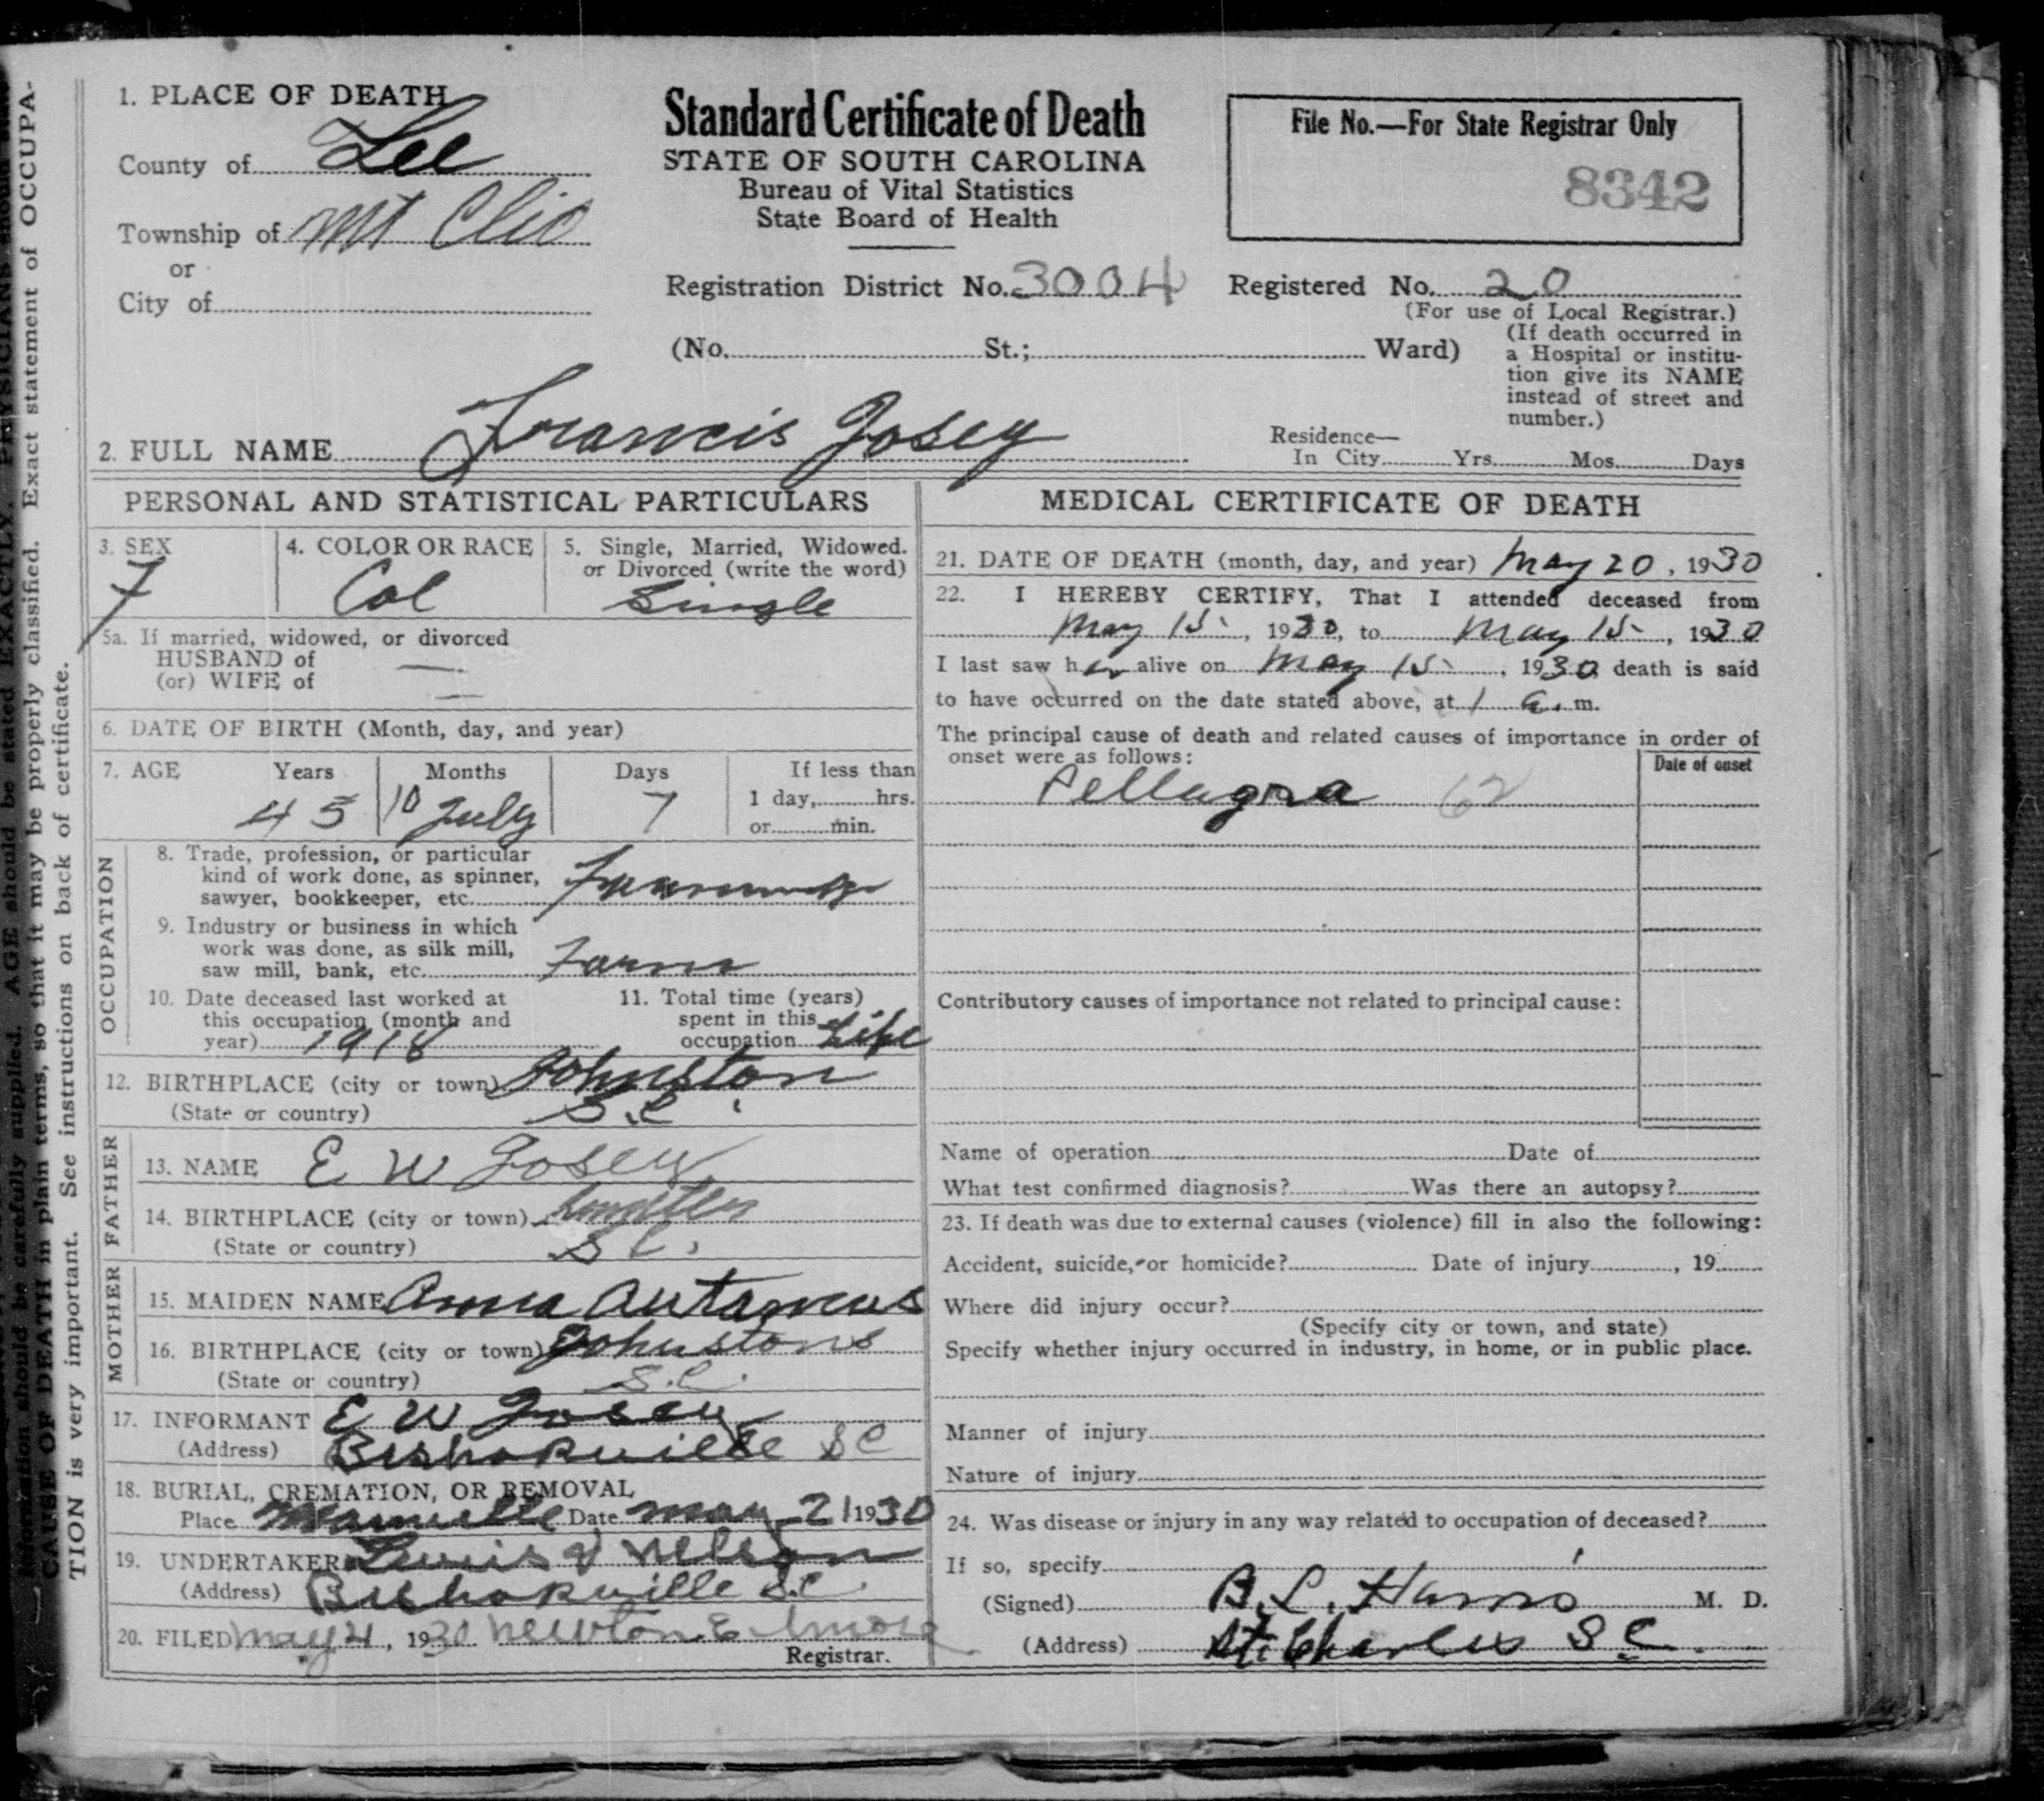 1. PLACE OF DEATH
County of Lee
Township of Mt Clio
or
City of
Standard Certificate of Death
STATE OF SOUTH CAROLINA
Bureau of Vital Statistics
State Board of Health
File No.—For State Registrar Only
8342
Registration District No. 3004
Registered No. 20
(For use of Local Registrar.)
(No. St.; Ward)
(If death occurred in
a Hospital or institu-
tion give its NAME
instead of street and
number.)
2. FULL NAME Francis Josey
Residence—
In City Yrs. Mos. Days
PERSONAL AND STATISTICAL PARTICULARS
3. SEX
F
4. COLOR OR RACE
Col
5. Single, Married, Widowed.
or Divorced (write the word)
Single
5a. If married, widowed, or divorced
HUSBAND of —
(or) WIFE of —
6. DATE OF BIRTH (Month, day, and year)
7. AGE Years Months Days If less than
45 10 July 7 1 day, hrs.
or min.
OCCUPATION
8. Trade, profession, or particular
kind of work done, as spinner,
sawyer, bookkeeper, etc. Farming
9. Industry or business in which
work was done, as silk mill,
saw mill, bank, etc. Farm
10. Date deceased last worked at
this occupation (month and
year) 1918
11. Total time (years)
spent in this
occupation Life
12. BIRTHPLACE (city or town) Johnston
(State or country) S.C.
FATHER
13. NAME E W Josey
14. BIRTHPLACE (city or town) Sumter
(State or country) S C.
MOTHER
15. MAIDEN NAME Anna
16. BIRTHPLACE (city or town) Johnstons
(State or country) S.C.
17. INFORMANT E W Josey
(Address) Bishopville S C
18. BURIAL, CREMATION, OR REMOVAL
Place Manville Date May 21 1930
19. UNDERTAKER Nelson
(Address) Bishopville S.C.
20. FILED May 4, 1930 Newton E
Registrar.
MEDICAL CERTIFICATE OF DEATH
21. DATE OF DEATH (month, day, and year) May 20, 1930
22. I HEREBY CERTIFY, That I attended deceased from
May 15, 1930, to May 15, 1930
I last saw her alive on May 15, 1930 death is said
to have occurred on the date stated above, at 1 a. m.
The principal cause of death and related causes of importance in order of
onset were as follows:
Date of onset
Pellagra 62
Contributory causes of importance not related to principal cause:
Name of operation Date of
What test confirmed diagnosis? Was there an autopsy?
23. If death was due to external causes (violence) fill in also the following:
Accident, suicide, or homicide? Date of injury , 19
Where did injury occur?
(Specify city or town, and state)
Specify whether injury occurred in industry, in home, or in public place.
Manner of injury
Nature of injury
24. Was disease or injury in any way related to occupation of deceased?
If so, specify
(Signed) B. L. Harris M. D.
(Address) St. Charles S C.
information should be carefully supplied. AGE should be stated EXACTLY. PHYSICIANS should
CAUSE OF DEATH in plain terms, so that it may be properly classified. Exact statement of OCCUPA-
TION is very important. See instructions on back of certificate.